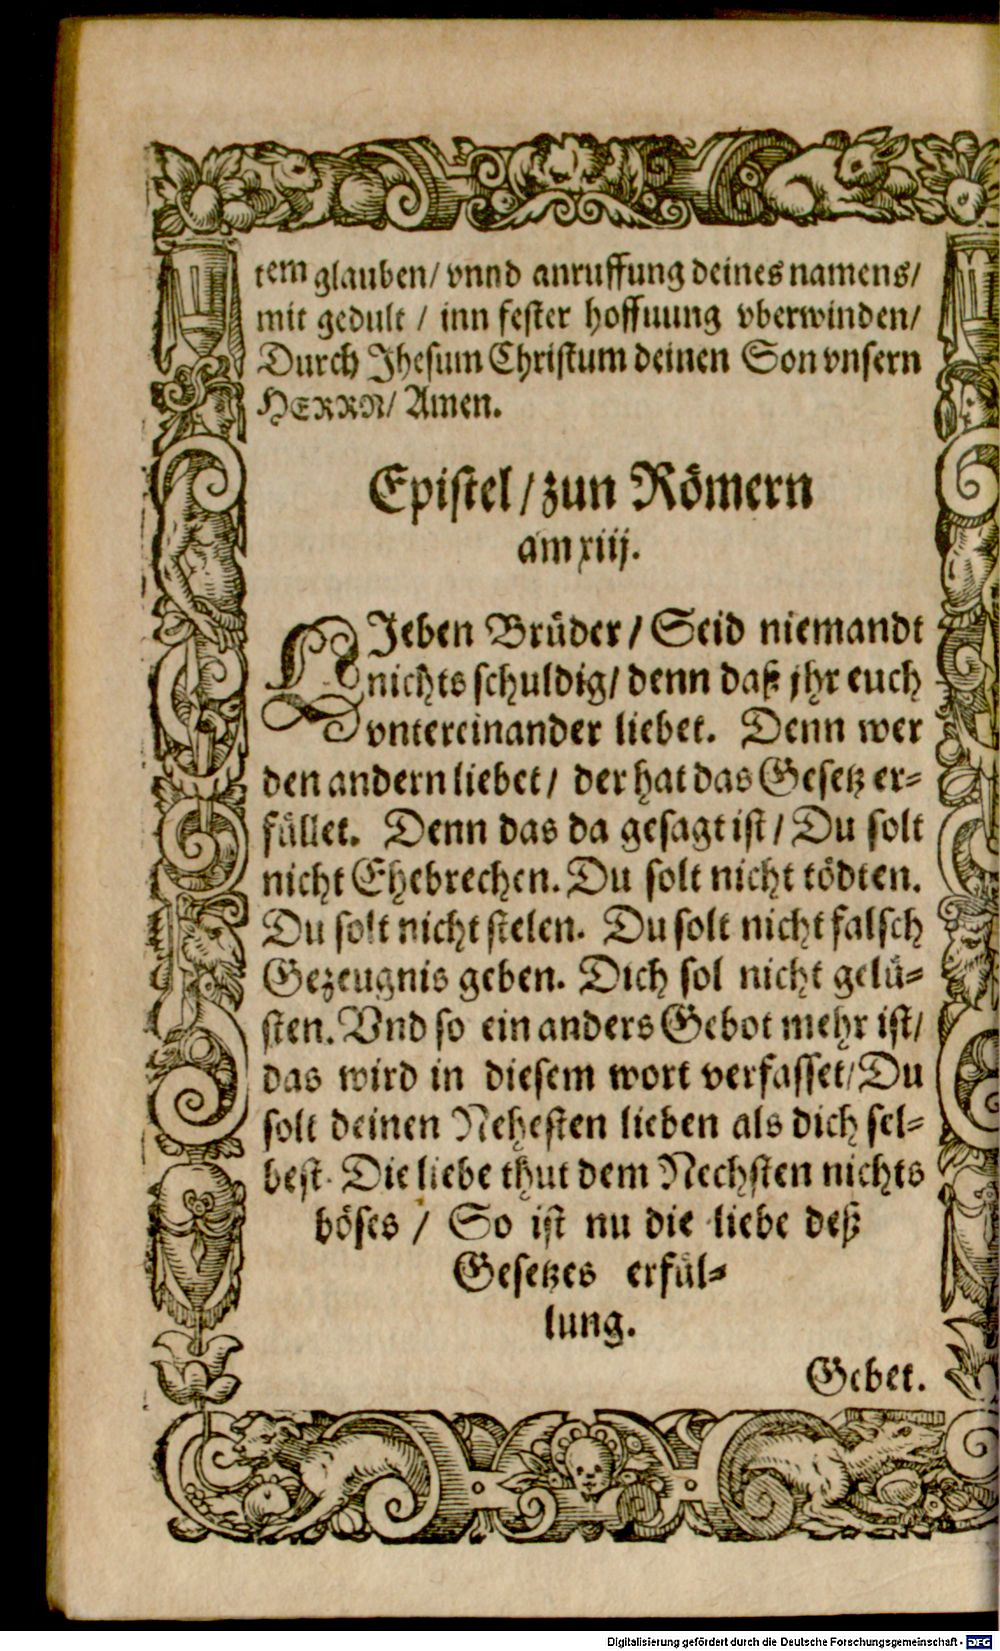 tem glauben/ vnnd anruffung deines namens/
mit gedult / inn fester hoffnung vberwinden/
Durch Jhesum Christum deinen Son vnsern
HERRN/ Amen.
Epistel / zun Römern
am xiij.
LJeben Brüder / Seid niemandt
nichts schuldig/ denn daß jhr euch
vntereinander liebet. Denn wer
den andern liebet/ der hat das Gesetz er-
füllet. Denn das da gesagt ist / Du solt
nicht Ehebrechen. Du solt nicht tödten.
Du solt nicht stelen. Du solt nicht falsch
Gezeugnis geben. Dich sol nicht gelü-
sten. Vnd so ein anders Gebot mehr ist/
das wird in diesem wort verfasset/ Du
solt deinen Nehesten lieben als dich sel-
best. Die liebe thut dem Nechsten nichts
böses / So ist nu die liebe deß
Gesetzes erfül-
lung.
Gebet.
Digitalisierung gefördert durch die Deutsche Forschungsgemeinschaft - DFG